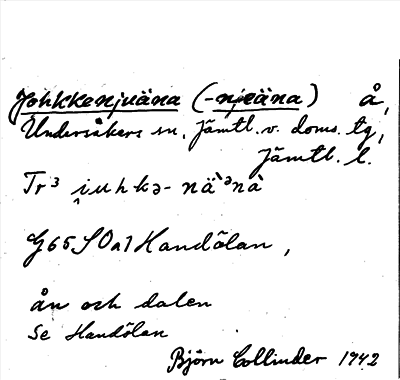 Johkkenjuäna (-njeäna) å,
Undersåkers sn, Jämtl. v. doms. tg,
Jämtl. l.
Tr³ i̭uhkə-nä`ənà
G65SOa1 Handölan,
ån och dalen
Se Handölan
Björn Collinder 1942